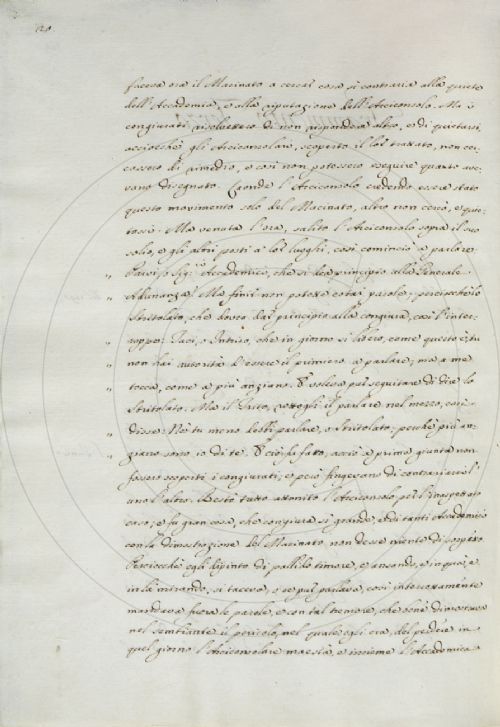 faceva ora il Macinato a cercar cosa sì contraria alla quiete
dell'Accademia, e alla riputazione dell'Arciconsolo. Ma i
congiurati risolvettero di non rispondere altro, e di quietarsi,
acciocchè gli Arciconsolari, scoperto il lor trattato, non cer-
cassero di rimedio, e così non potessero eseguire quanto ave-
vano disegnato. Laonde l'Arciconsolo credendo essere stato
questo movimento solo del Macinato, altro non cercò, e quie-
tossi. Ma venuta l'ora, salito l'Arciconsolo sopra il suo
solio, e gli altri posti a lor luoghi, così cominciò a parlare.
" Sig.ri Accademici, che si dea principio alla Generale
" Adunanza. Ma finir non potette parole, perciocchè lo
Stritolato, che dovea dar principio alla congiura, così l'inter-
" roppe: Taci, o Intriso, che in giorno sì libero, come questo è, tu
" non hai autorità d'essere il primiero a parlare; ma a me
" tocca, come a più anziano. E voleva poi seguitare di dire lo
Stritolato. Ma il rottogli il parlare nel mezzo, così
" disse: Nè tu meno dei parlare, o Stritolato; perchè più an-
" ziano sono io di te. E ciò fu fatto, acciò a prima giunta non
fossero scoperti i congiurati; e però fingevano di contrariare l'
uno l'altro. Restò tutto attonito l'Arciconsolo per l'inaspettato
caso; e fu gran cosa, che congiura sì grande, e di tanti Accademici
con la dimostrazione del Macinato non desse niente di sospetto.
Perciocchè egli dipinto di pallido timore, e ansando, e in qua, e
in là mirando, si taceva, o se pur parlava, così interrottamente
mandava fuora le parole, e con tal tremore, che bene dimostrava
nel sembiante il pericolo, nel quale egli era, del perdere in
quel giorno l'Arciconsolare maestà, e insieme l'Accademica